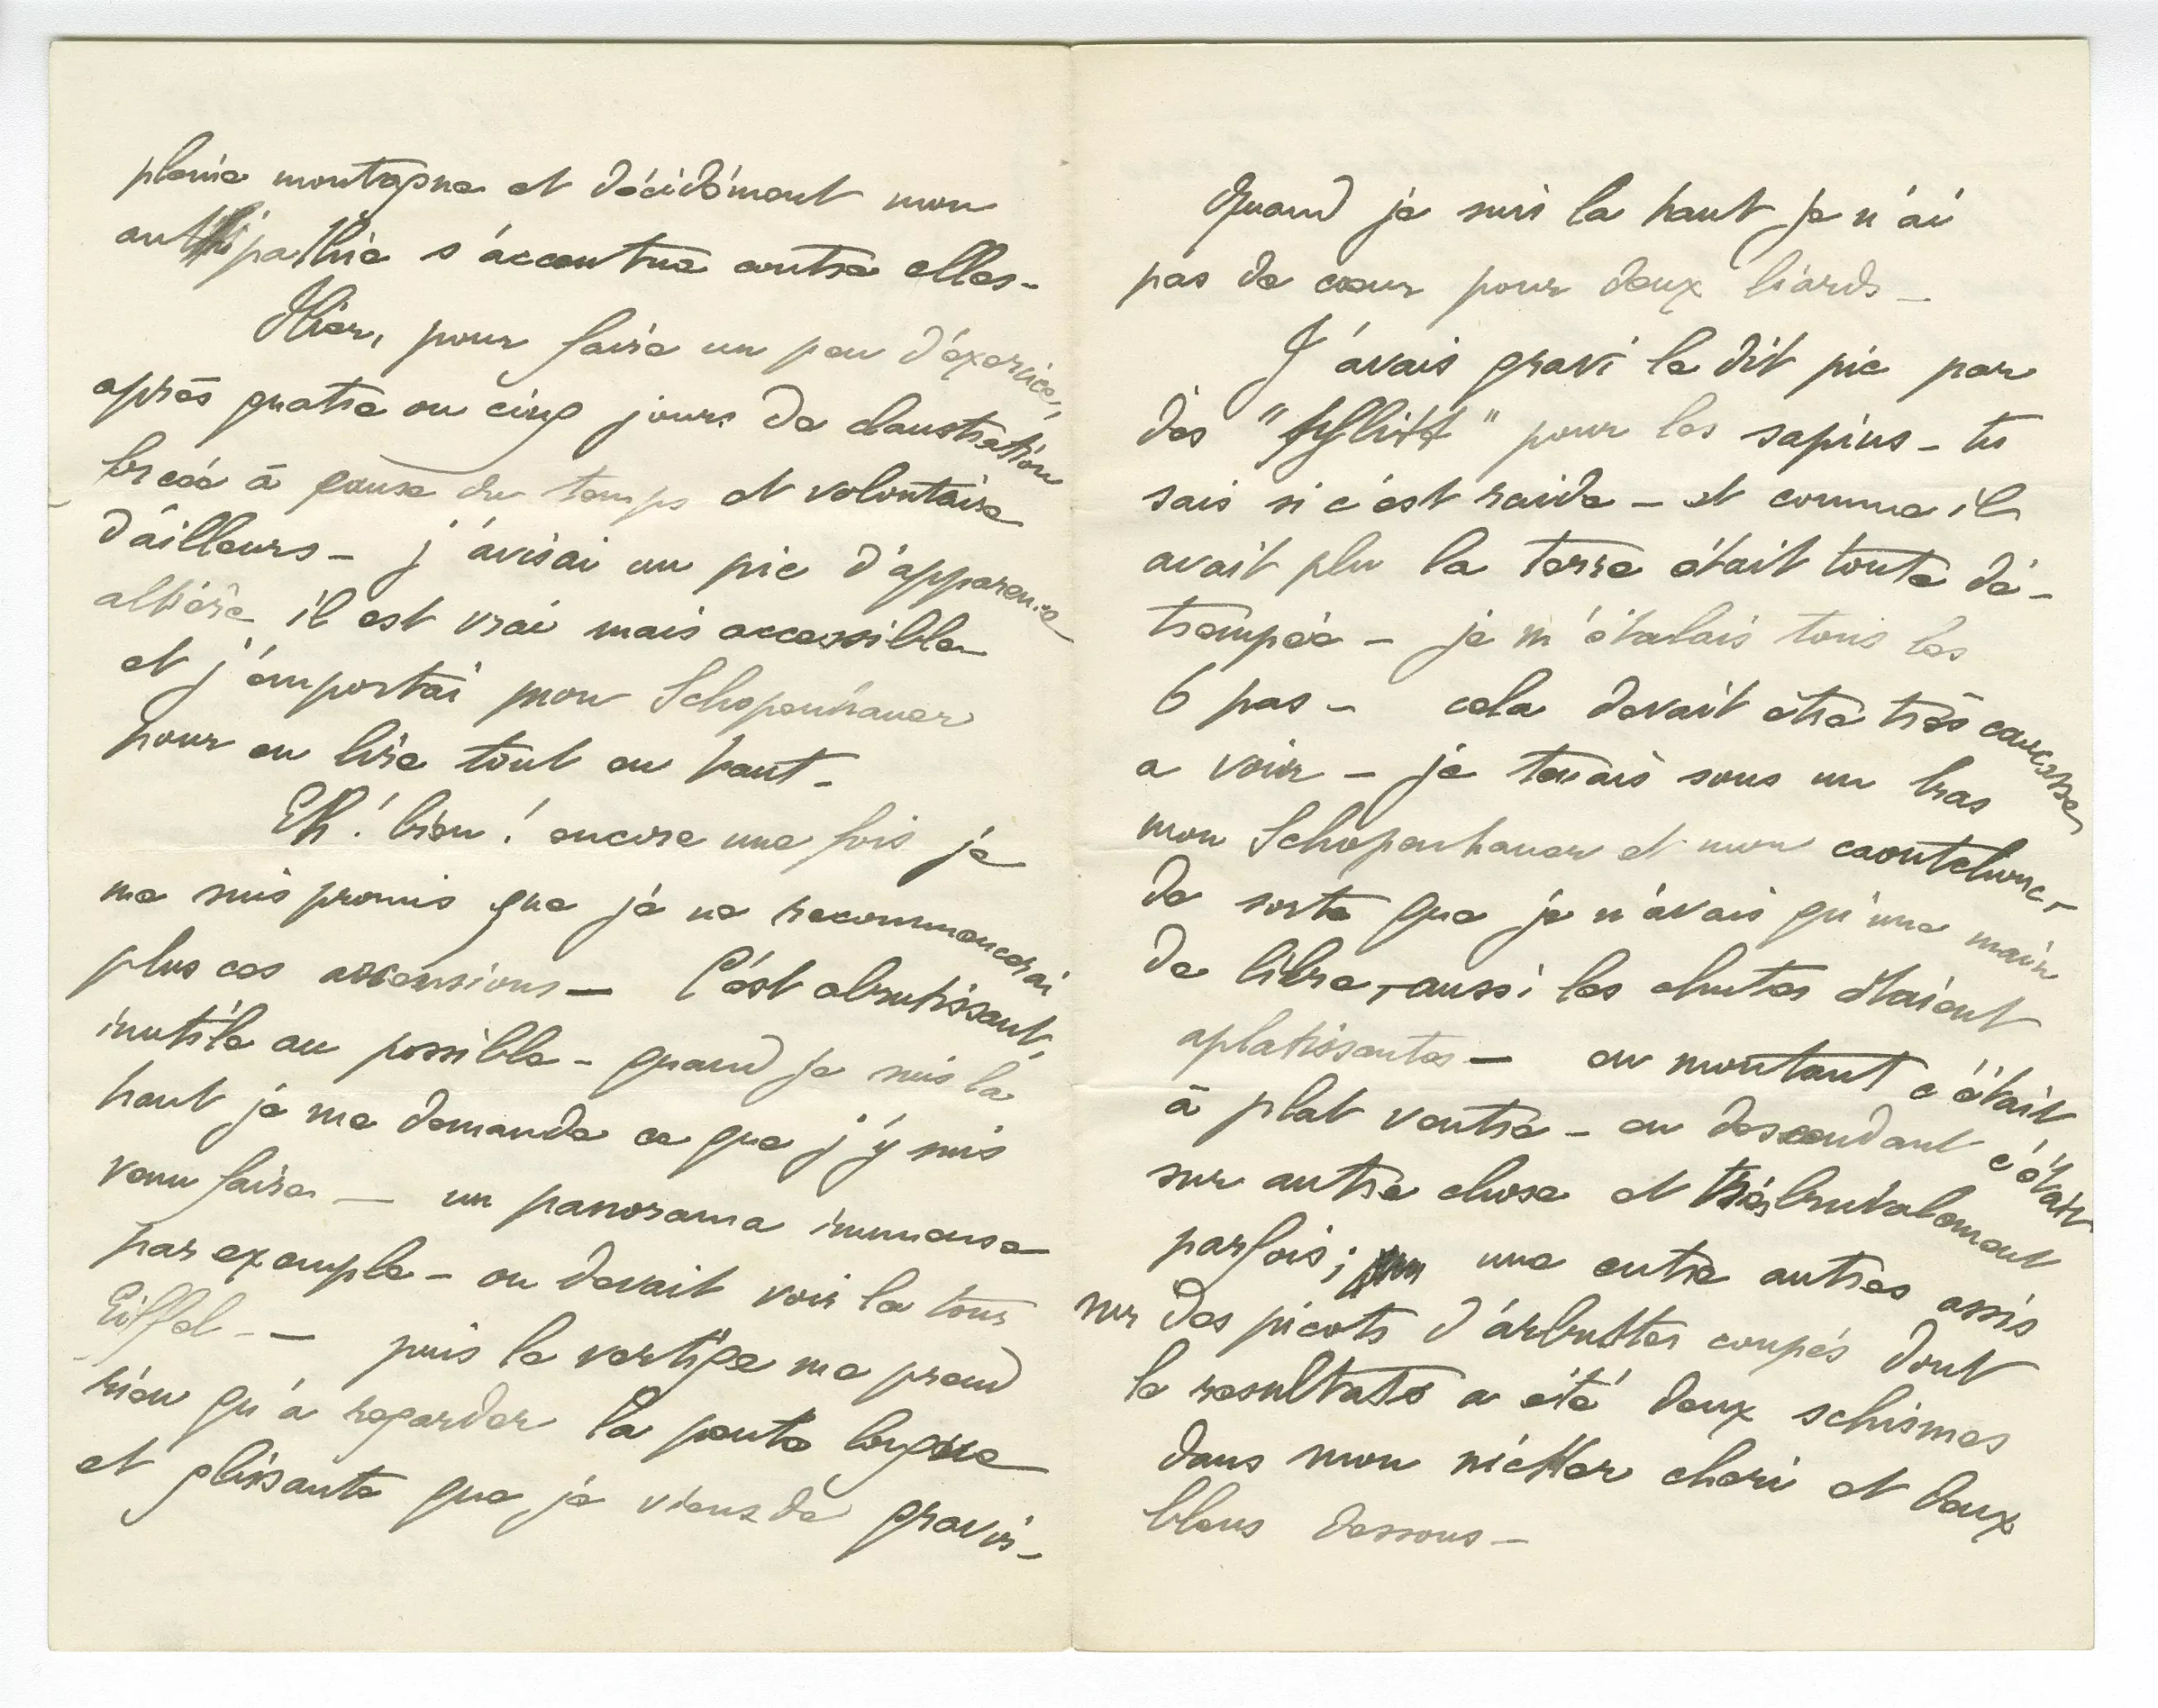 pleine montagne et décidément mon
antipathie s'accentue contre elles -
Hier, pour faire un peu d'éxercice,
après quatre ou cinq jours de claustration
à cause du temps et volontaire
d'ailleurs - j'avisai un pic d'apparence
altière il est vrai mais accessible
et j'emportai mon Schopenhauer
pour en lire tout en haut -
Eh! bien! encore une fois je
me suis promis que je ne recommencerai
plus ces ascensions - C'est abrutissant,
inutile au possible - quand je suis la
haut je me demande ce que j'y suis
venu faire - un panorama immense
par exemple - on devait voir la tour
Eiffel - - puis le vertige me prend
rien qu'à regarder la pente longue
et glissante que je viens de gravir -
Quand je suis la haut je n'ai
pas de cœur pour deux liards -
J'avais gravi le dit pic par
des "schlitt" pour les sapins - tu
sais si c'est raide - et comme il
avait plu la terre était toute dé-
trempée - je m'étalais tous les
6 pas - cela devait être très cocasse
a voir - je tenais sous un bras
mon Schopenhauer et mon caoutchouc -
de sorte que je n'avais qu'une main
de libre, - aussi les chutes étaient
aplatissantes - en montant c'était
à plat ventre - en descendant c'était
sur autre chose et très brutalement
parfois; une entre autres assis
sur des picots d'arbustes coupés dont
le resultats a été deux schismes
dans mon chéri et deux
bleus dessous -